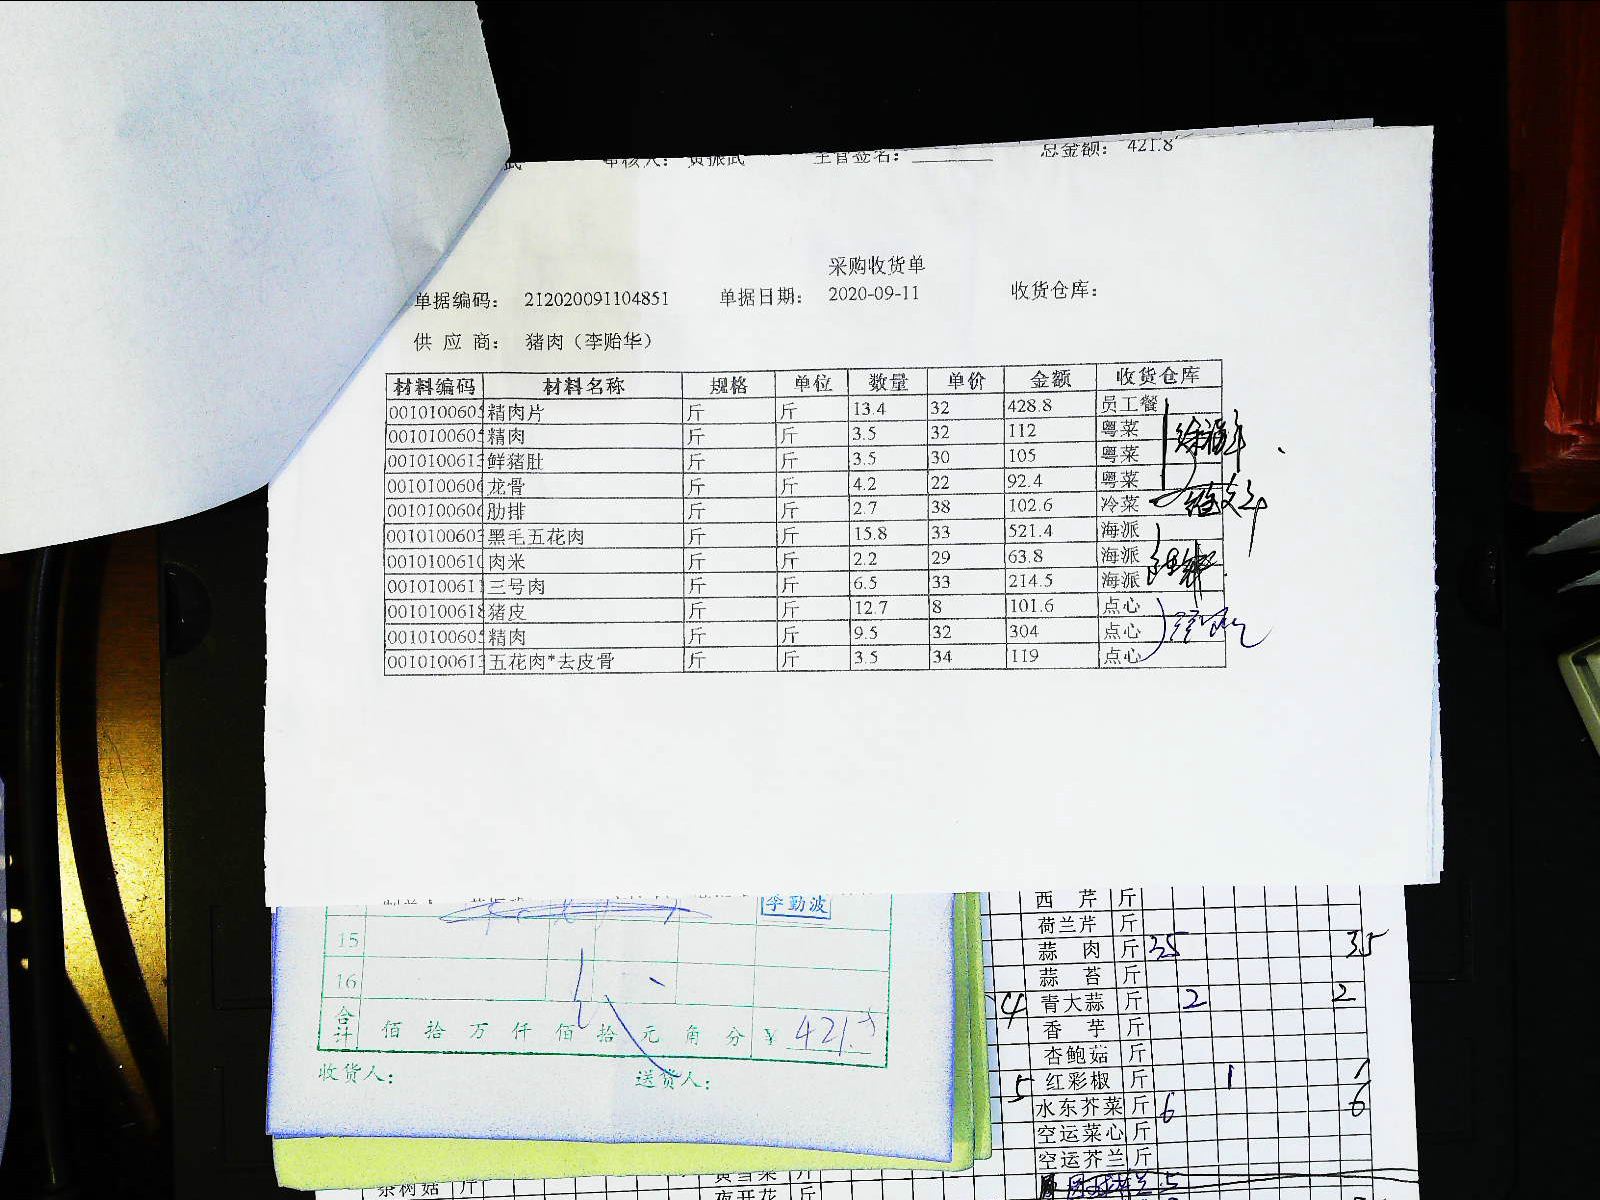 审核人： 黄振武 主管签名： 总金额： 421.8
采购收货单
单据编码： 212020091104851 单据日期： 2020-09-11 收货仓库：
供 应 商： 猪肉（李贻华）
材料编码 材料名称 规格 单位 数量 单价 金额 收货仓库
0010100605 精肉片 斤 斤 13.4 32 428.8 员工餐
0010100605 精肉 斤 斤 3.5 32 112 粤菜
0010100613 鲜猪肚 斤 斤 3.5 30 105 粤菜
0010100606 龙骨 斤 斤 4.2 22 92.4 粤菜
0010100606 肋排 斤 斤 2.7 38 102.6 冷菜
0010100603 黑毛五花肉 斤 斤 15.8 33 521.4 海派
0010100610 肉米 斤 斤 2.2 29 63.8 海派
0010100611 三号肉 斤 斤 6.5 33 214.5 海派
0010100618 猪皮 斤 斤 12.7 8 101.6 点心
0010100605 精肉 斤 斤 9.5 32 304 点心
0010100613 五花肉*去皮骨 斤 斤 3.5 34 119 点心
李勤波
15
16
合计 佰 拾 万 仟 佰 拾 元 角 分 ¥ 421.8
收货人： 送货人：
西 芹 斤
荷兰芹 斤
蒜 肉 斤 35 35
蒜 苔 斤
4 青大蒜 斤 2 2
香 芋 斤
杏鲍菇 斤
5 红彩椒 斤 1 1
水东芥菜 斤 6 6
空运菜心 斤
空运芥兰 斤
茶树菇 斤
夜开花 斤